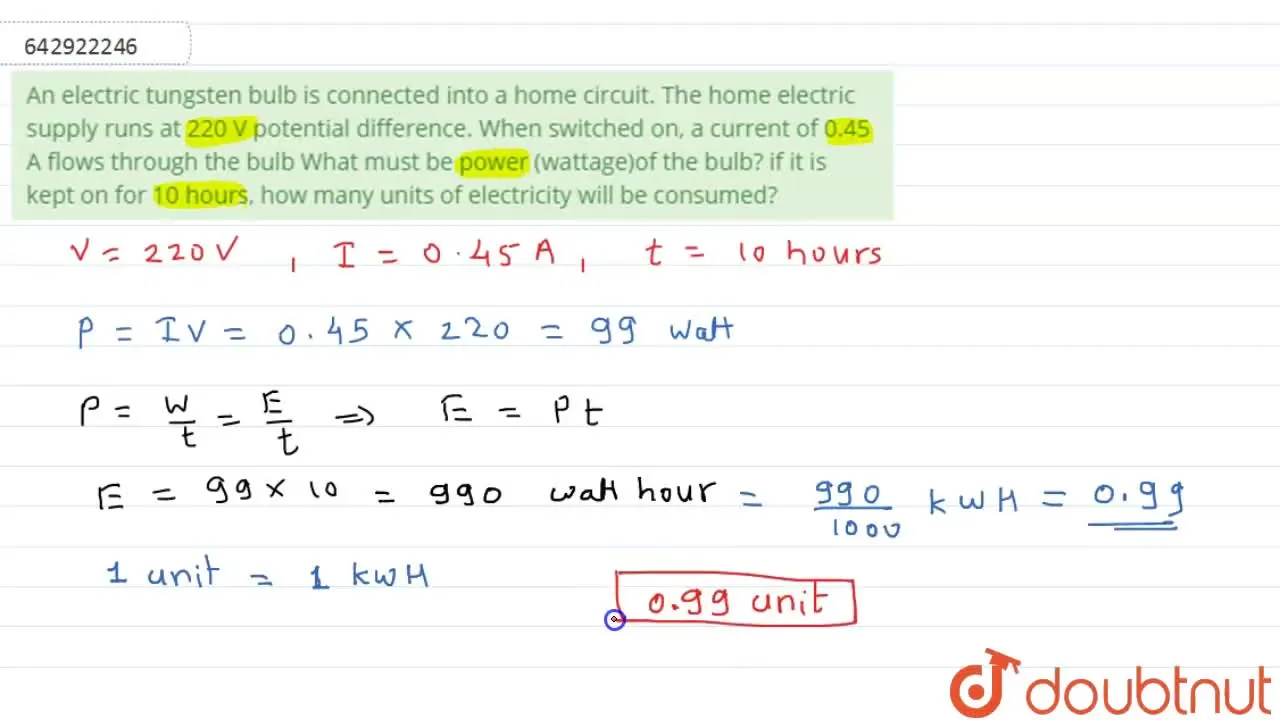 642922246
An electric tungsten bulb is connected into a home circuit. The home electric
supply runs at 220 V potential difference. When switched on, a current of 0.45
A flows through the bulb What must be power (wattage)of the bulb? if it is
kept on for 10 hours, how many units of electricity will be consumed?
V = 220V , I = 0.45 A , t = 10 hours
P = IV = 0.45 × 220 = 99 watt
P = W/t = E/t ⇒ E = Pt
E = 99 × 10 = 990 watt hour = 990/1000 kWH = 0.99
1 unit = 1 kWH
0.99 unit
doubtnut